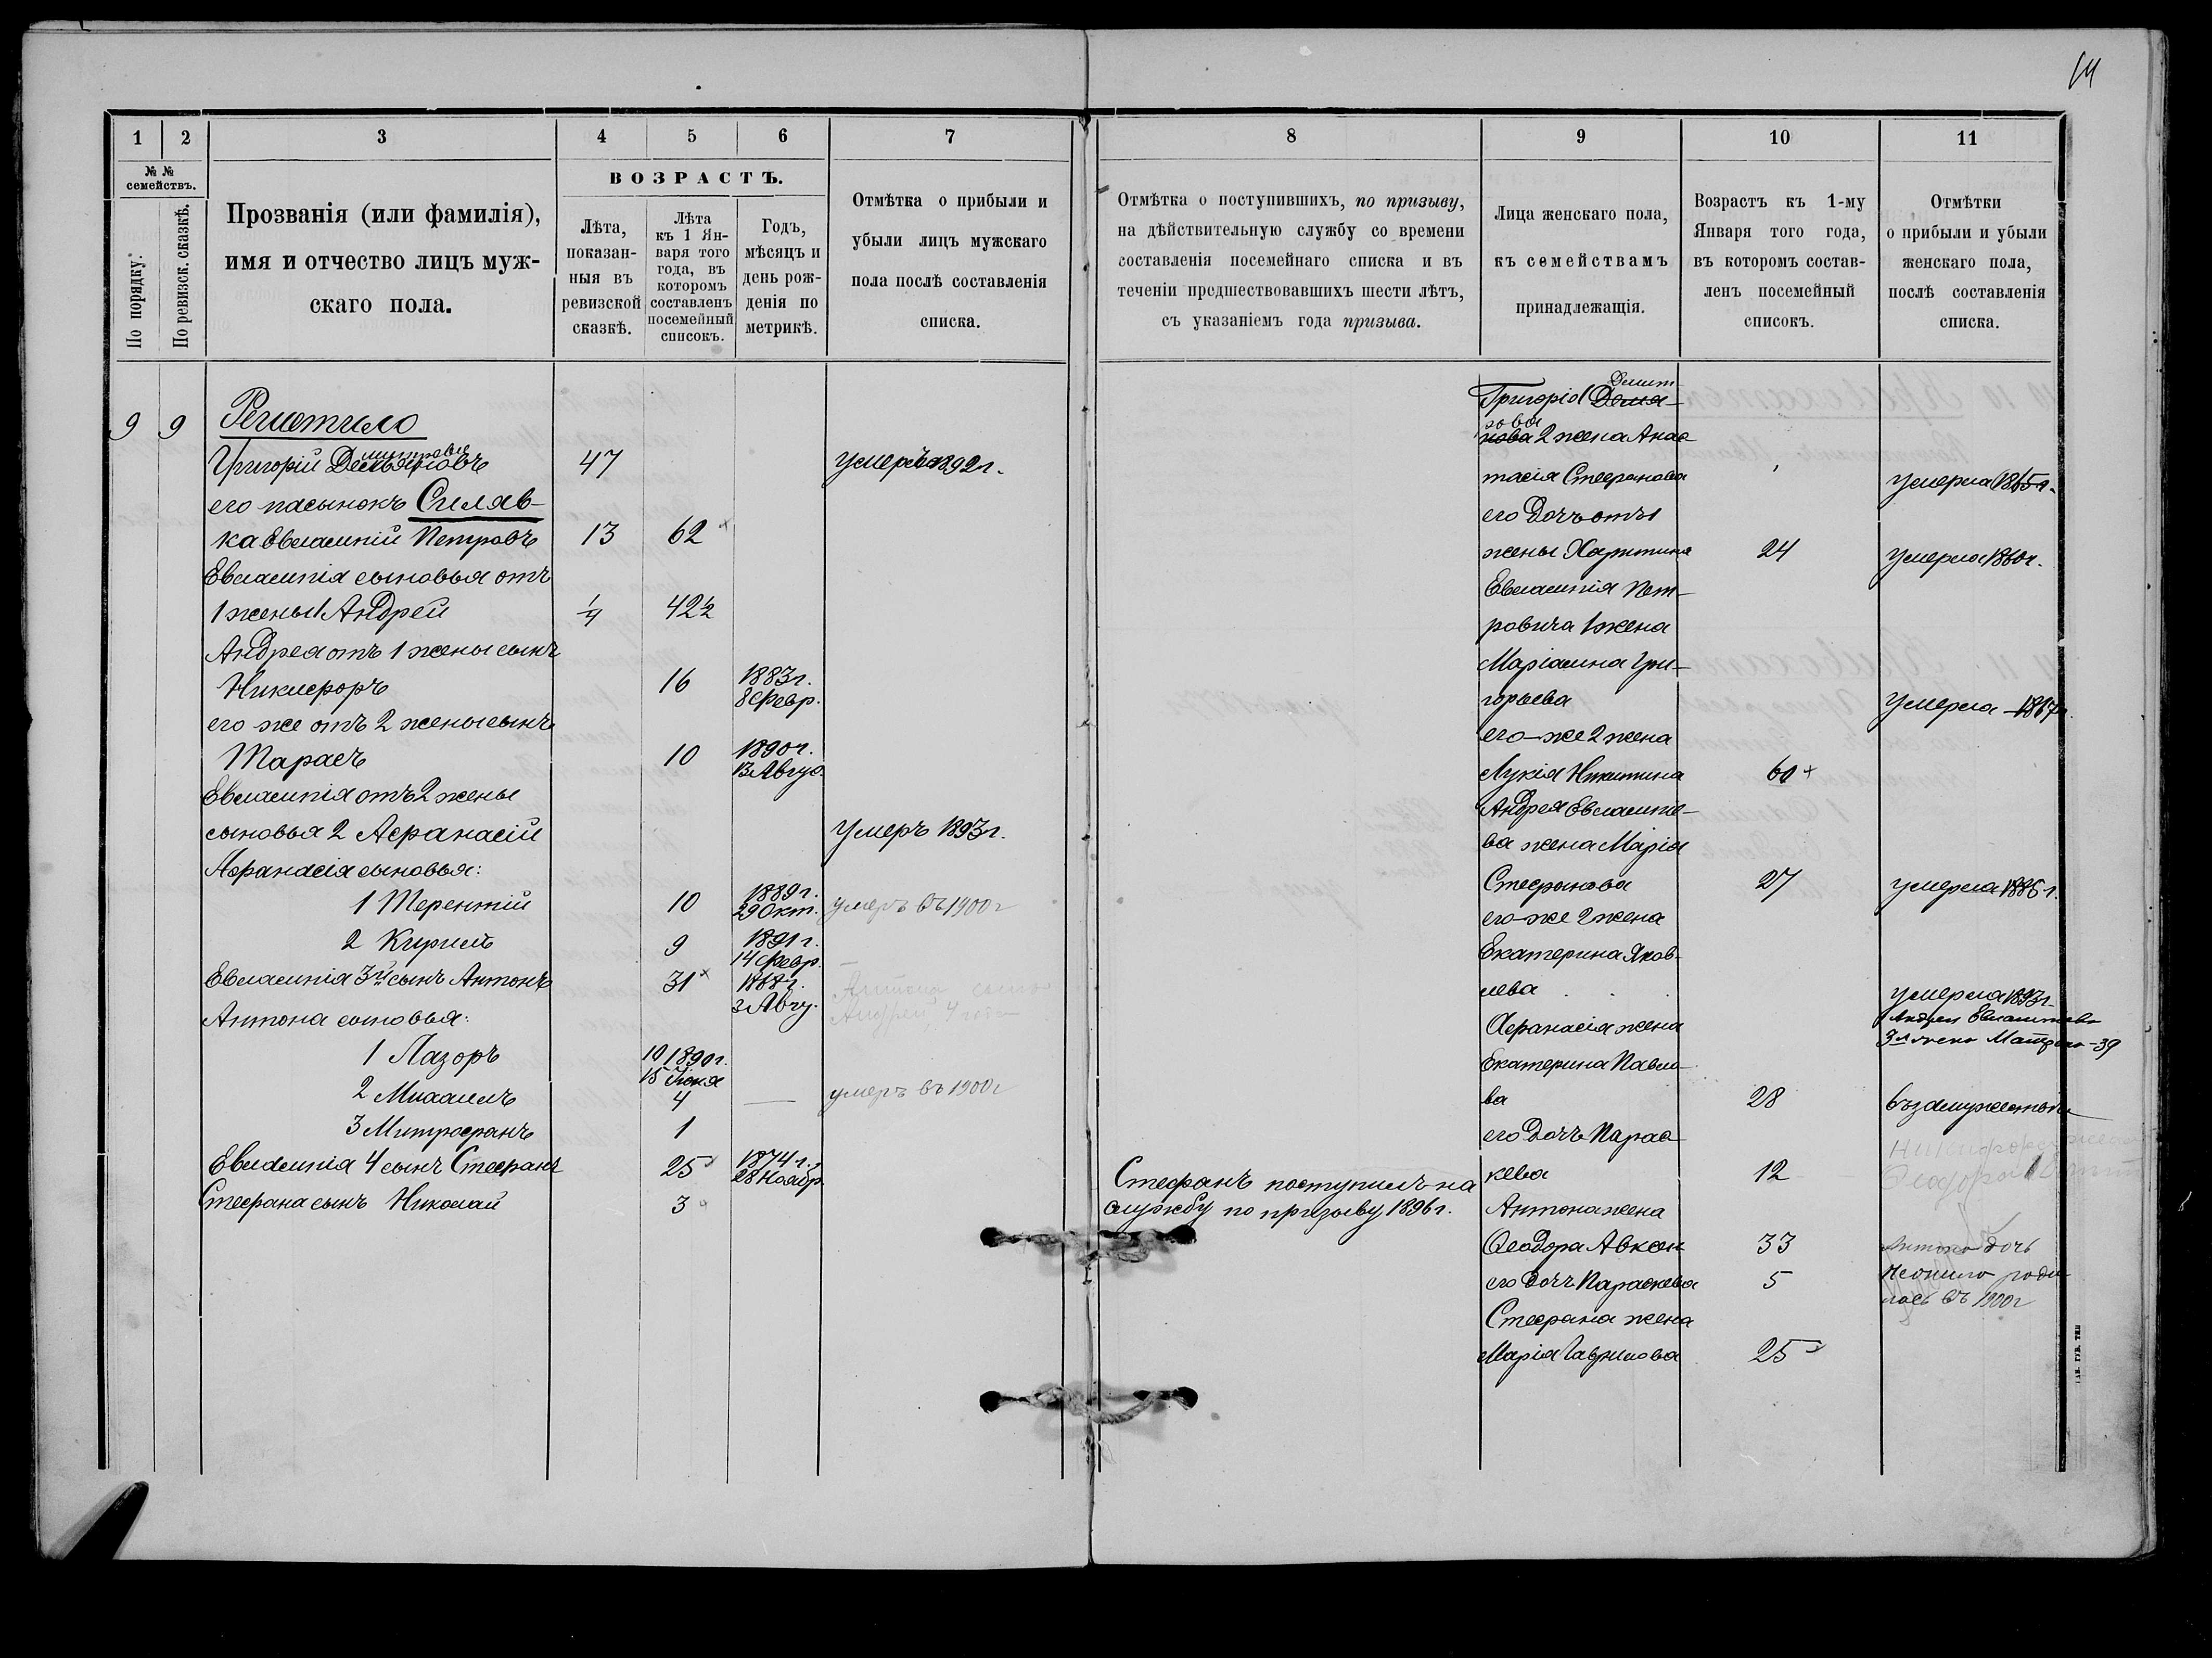 14
1
2
3
4
5
6
7
8
9
10
11
№ №
семействъ.
По порядку.
По ревизск. сказкѣ.
Прозванія (или фамилія),
имя и отчество лицъ муж-
скаго пола.
ВОЗРАСТЪ.
Лѣта,
показан-
ныя въ
ревизской
сказкѣ.
Лѣта
къ 1 Ян-
варя того
года, въ
которомъ
составленъ
посемейный
списокъ.
Годъ,
мѣсяцъ и
день рож-
денія по
метрикѣ.
Отмѣтка о прибыли и
убыли лицъ мужскаго
пола послѣ составленія
списка.
Отмѣтка о поступившихъ, по призыву,
на дѣйствительную службу со времени
составленія посемейнаго списка и въ
теченіи предшествовавшихъ шести лѣтъ,
съ указаніемъ года призыва.
Лица женскаго пола,
къ семействамъ
принадлежащія.
Возрастъ къ 1-му
Января того года,
въ которомъ состав-
ленъ посемейный
списокъ.
Отмѣтки
о прибыли и убыли
женскаго пола,
послѣ составленія
списка.
9 9 Решетило
Григорій Демьяновъ 47 умеръ 1892г.
его пасынокъ Силяв-
ка Евлампій Петровъ 13 62
Евлампія сыновья отъ
1 жены 1 Андрей 1/4 42 1/2
Андрея отъ 1 жены сынъ
Никифоръ 16 1883г.
8 Февр.
его же отъ 2 жены сынъ
Тарасъ 10 1890г.
13 Авгус.
Евлампія отъ 2 жены
сыновья 2 Афанасій умеръ 1893г.
Афанасія сыновья:
1 Терентій 10 1889г.
29 Окт. умеръ въ 1900г
2 Кирилъ 9 1891г.
14 Февр.
Евлампія 3й сынъ Антонъ 31 1868г.
3 Авгу.
Антона сына
Андрей 4 года
Антона сыновья:
1 Лазоръ 10 1890г.
15 Іюня
2 Михаилъ 4 — умеръ въ 1900г
3 Митрофанъ 1
Евлампія 4 сынъ Стефанъ 25 1874г.
28 Ноябр.
Стефана сынъ Николай 3
Стефанъ поступилъ на
службу по призыву 1896г.
Григорія Демит
рова 2 жена Анас
тасія Стефанова умерла 1865г.
его дочь отъ 1
жены Харитина 24 умерла 1860г.
Евлампія Пет-
ровича 1 жена
Маріамна Гри-
горьева умерла 1867г.
его-же 2 жена
Лукія Никитина 60
Андрея Евлампіе-
ва жена Марія
Стефанова 27 умерла 1886г.
его-же 2 жена
Екатерина Яков-
лева умерла 1893г.
Андрея Евлампіева
3я жена Матрона-39
Афанасія жена
Екатерина Павло-
ва 28 въ замужестве
его дочь Парас-
кева 12
Антона жена
Ѳеодора Авксен 33
его дочь Параскева 5
Стефана жена
Марія Гаврилова 25
Никифора жена
Ѳеодора
Антона дочь
Неонила роди
лась въ 1900г